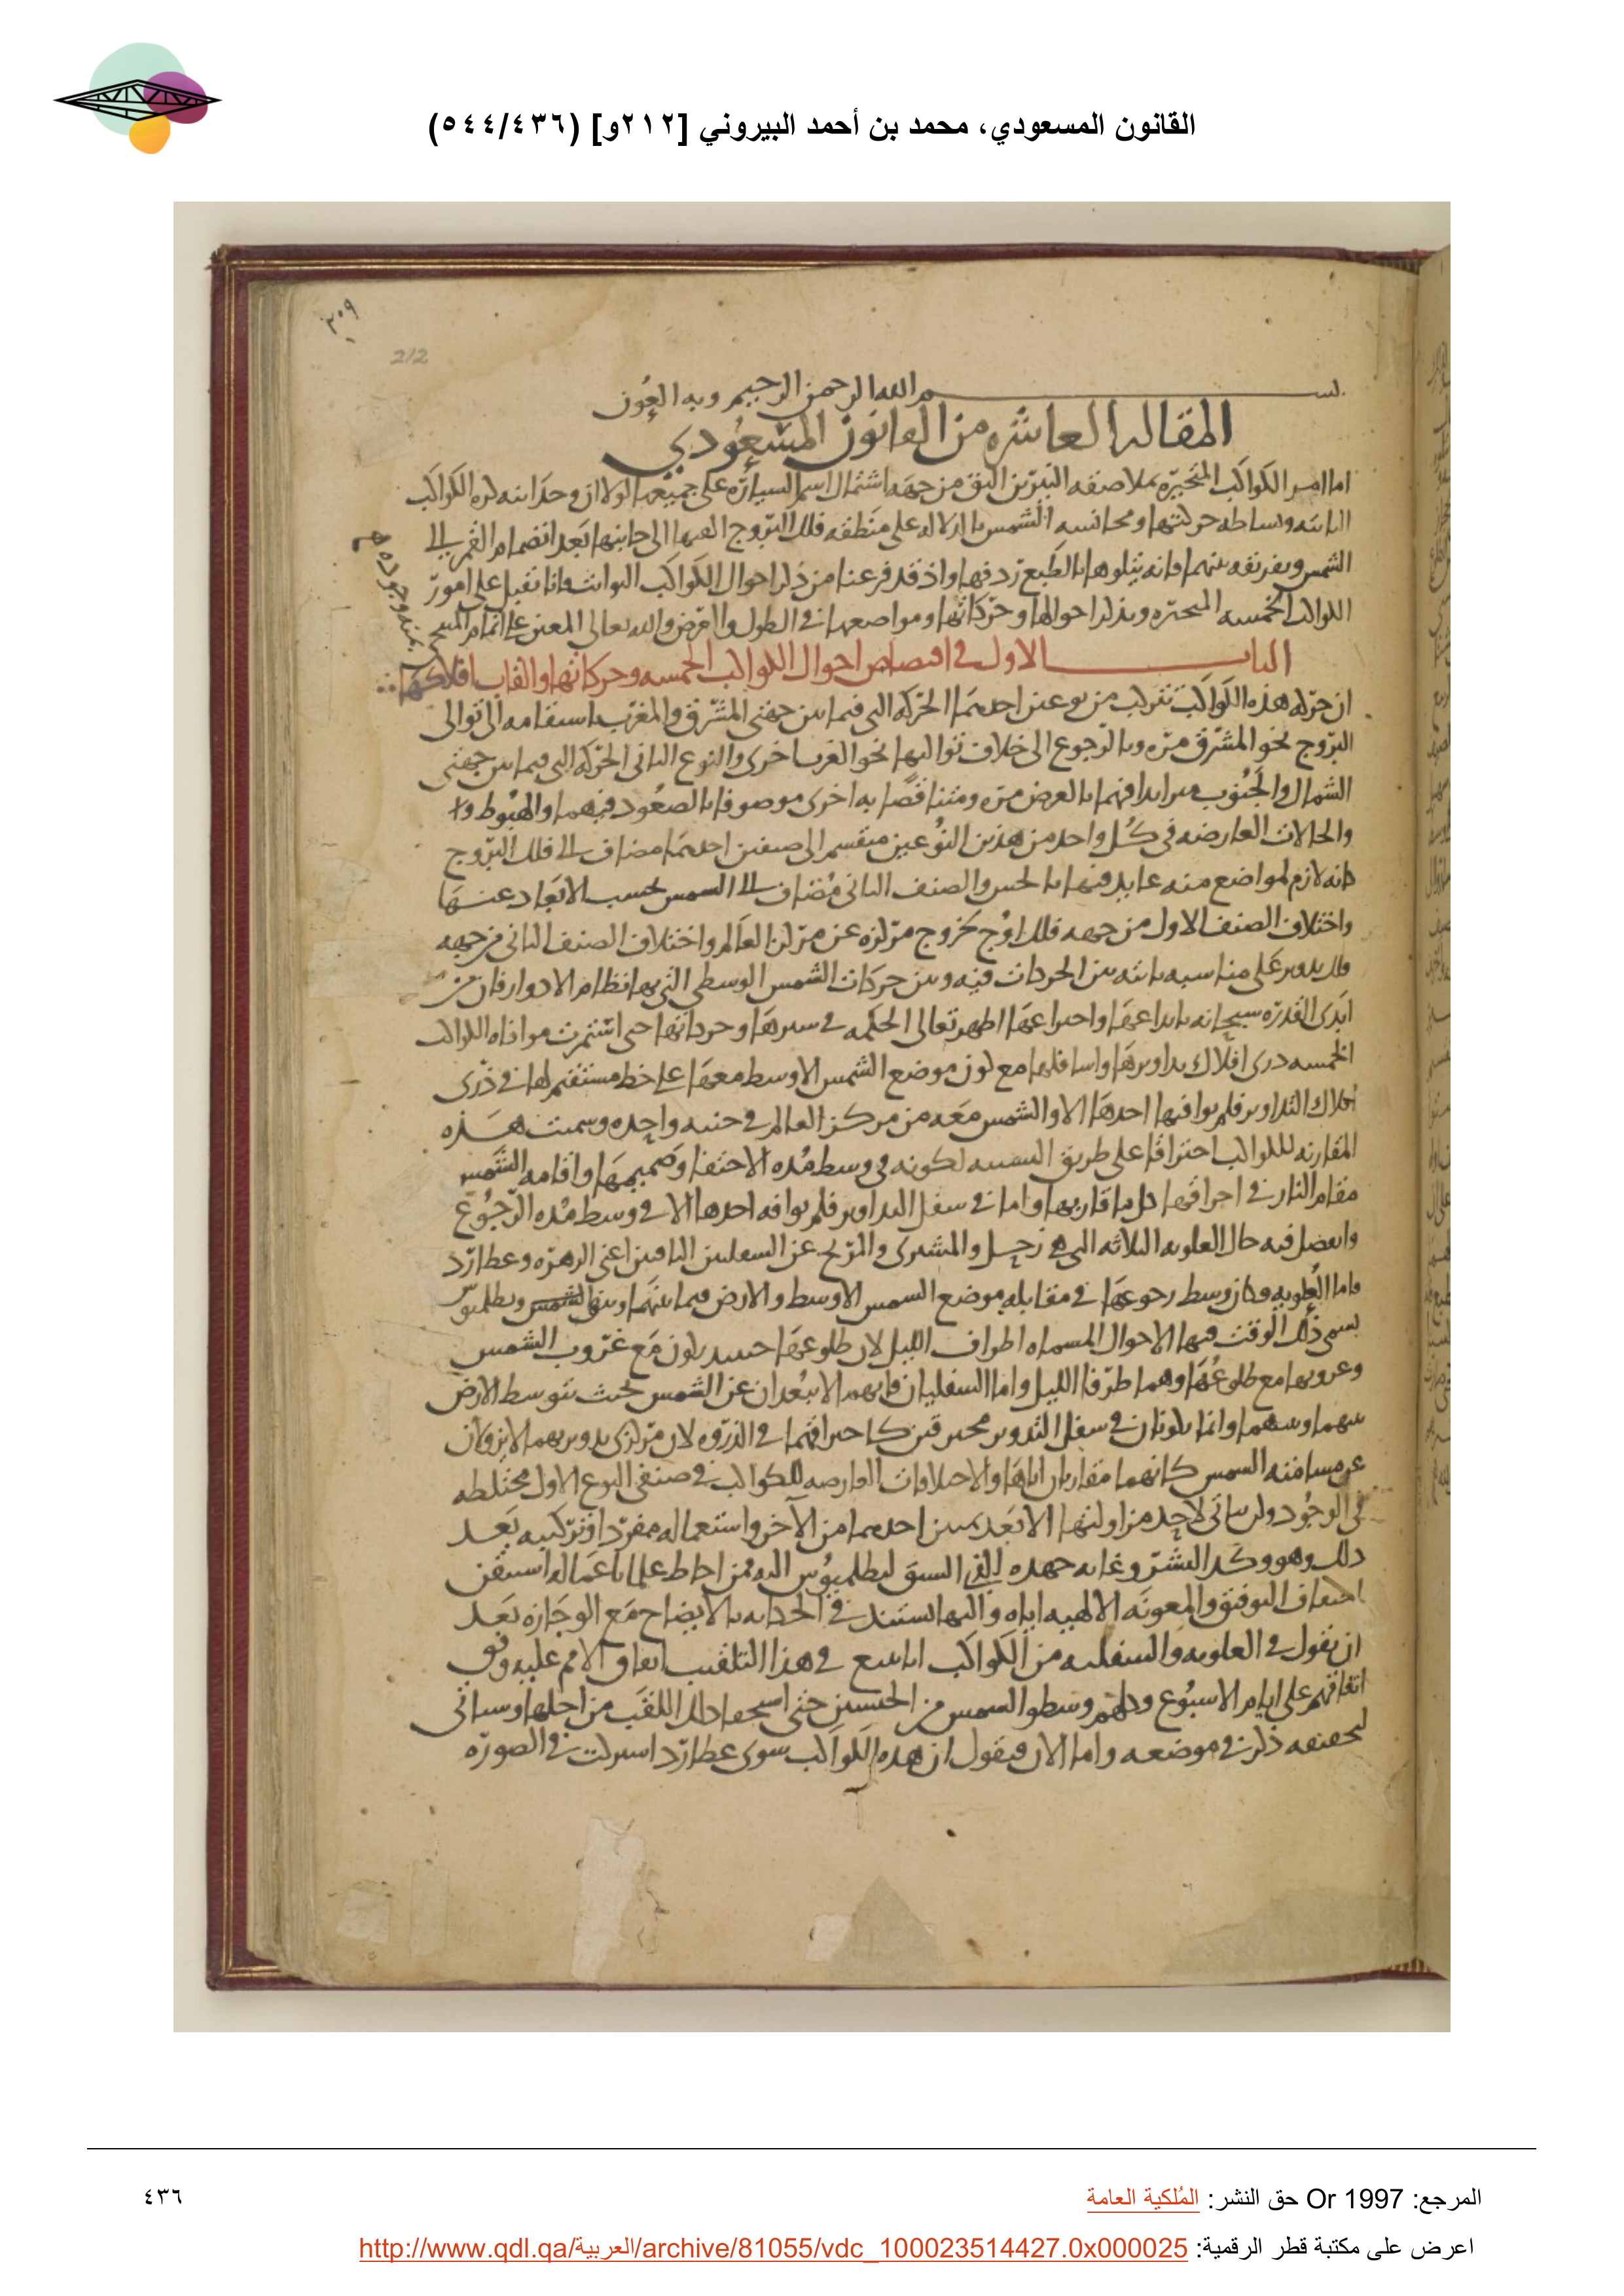 القانون المسعودي، محمد بن أحمد البيروني [٢١٢و] (٥٤٤/٤٣٦)
٣٠٩
212
بسم الله الرحمن الرحيم وبه العون
المقاله العاشره من القانون المسعودي
اما امر الكواكب المتحيره بملاصقه النيرين اليق من جهه اشتمال اسم السياره على جميعها لولا ان وحدانيه كره الكواكب
الثابته وبساطه حركتها ومجانسه الشمس اياها على منطقه فلك البروج الى جانبها بعد انضمام القمر الى
الشمس وبفرتقه بينهما فانه يتلوها بالطبع ردفها واذ قد فرغنا من ذكر احوال الكواكب الثوابت فانا نقبل على امور
الكواكب الخمسه المتحيره ونذكر احوالها وحركاتها ومواضعها في الطول والعرض والله تعالى المعين على اتمام
بمنه وجوده
الباب الاول في اقتصاص احوال الكواكب الخمسه وحركاتها والقاب افلاكها
ان حركه هذه الكواكب تتركب من نوعين احدهما الحركه التي فيما بين جهتي المشرق والمغرب باستقامه الى توالي
البروج نحو المشرق مره وبالرجوع الى خلاف تواليها نحو المغرب اخرى والنوع الثاني الحركه التي فيما بين جهتي
الشمال والجنوب متزايدا فيهما بالعرض مره ومتناقصا به اخرى موصوفا بالصعود فيهما والهبوط
والحالات العارضه في كل واحد من هذين النوعين منقسم الى صنفين احدهما مضاف الى فلك البروج
كانه لازم لمواضع منه عايد فيها بالحس والصنف الثاني مضاف الى الشمس بحسب الابعاد عنها
واختلاف الصنف الاول من جهه فلك اوج بخروج مركزه عن مركز العالم واختلاف الصنف الثاني من جهه
فلك تدوير على مناسبه ثابته بين الحركات فيه وبين حركات الشمس الوسطى التي بها نظام الادوار فان من
ابدى القدره سبحانه بابداعها واختراعها اظهر تعالى الحكمه في سيرها وحركاتها حتى استمرت موافاه الكواكب
الخمسه ذرى افلاك تداويرها واسافلها مع كون موضع الشمس الاوسط معها على خط مستقيم لها في ذرى
افلاك التداوير فلم يوافيها احدها الا والشمس معه من مركز العالم في جنبه واحده وسميت هذه
المقارنه للكواكب احتراقا على طريق التشبيه لكونه في وسط مده الاختفا وصميمها واقامه الشمس
مقام النار في احراقها كل ما قاربها واما في سفل التداوير فلم يوافه احدها الا في وسط مده الرجوع
وانفصل فيه حال العلويه الثلاثه التي هي زحل والمشترى والمريخ عن السفليين الباقيين اعني الزهره وعطارد
فاما العلويه فكان وسط رجوعها في مقابله موضع الشمس الاوسط والارض فيما بينها وبين الشمس وبطلميوس
يسمي ذلك الوقت فيها الاحوال المسماه اطراف الليل لان طلوعها حينئذ يكون مع غروب الشمس
وغروبها مع طلوعها وهما طرفا الليل واما السفليان فانهما لا يبعدان عن الشمس بحيث تتوسط الارض
بينهما وبينها وانما يكونان في سفل التدوير محترقين كاحتراقهما في الذروه لان مركزي تدويريهما لا يزولان
عن مسامته الشمس كانهما مقارنان اياها والاختلافات العارضه للكواكب في صنفي النوع الاول مختلطه
في الوجود ولن يتاتى لاحد مزاولتها الا بعد تمييز احدهما من الآخر واستعماله مفردا وتركيبه بعد
ذلك وهو وكد البشر وغايه جهده السبق لبطلميوس اليه ومن احاط علما باعماله استيقن
التوفيق والمعونه الالهيه اياه واليها استند في بالايضاح مع الوجازه بعد
ان نقول في العلويه والسفليه من الكواكب في هذا التلقيب اتفاق الامم عليه وفق
اتفاقهم على ايام الاسبوع وسطو الشمس من حتى استحقا ذلك اللقب من اجلها وسياتي
لتحقيقه ذكر في موضعه واما الان فنقول ان هذه الكواكب سوى عطارد اشتركت في الصوره
المرجع: Or 1997 حق النشر: المُلكية العامة
٤٣٦
اعرض على مكتبة قطر الرقمية: http://www.qdl.qa/العربية/archive/81055/vdc_100023514427.0x000025